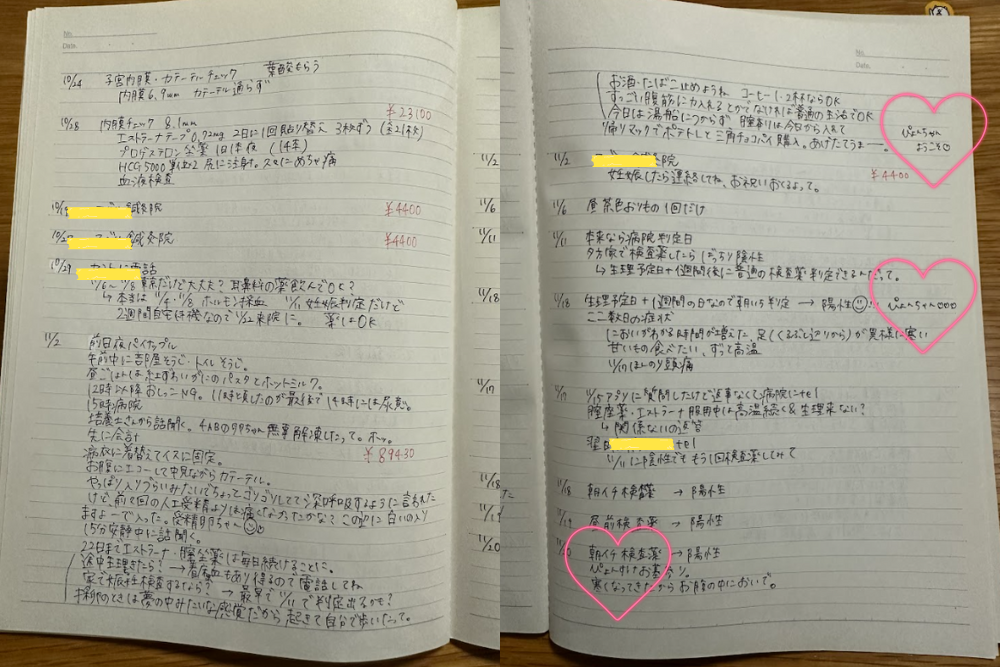 No.
Date.
10/24 子宮内膜・カテーテルチェック 葉酸もらう
内膜6.9mm カテーテル通らず
¥23100
10/28 内膜チェック 8.1mm
エストラーナテープ0.72mg 2日に1回貼り替え 3枚ずつ
プロゲステロン 1日 夜
HCG5000 尻に注射。
血液検査
¥4400
鍼灸院
¥4400
10/29 電話
11/6〜11/8 東京だけど大丈夫? 耳鼻科の薬飲んでOK?
↳本当は 11/4・11/8 ホルモン採血 11/11 妊娠判定だけど
2週間自宅待機なので11/22来院に。 薬はOK
11/2 前日夜パイナップル
午前中にお部屋そうじ・トイレそうじ
昼ごはんは紅ずわいがにのパスタとホットミルク。
12時以降おしっこNG。 11時 したのが最後で14時には尿意。
15時病院
培養士さんから話聞く。 4ABの 無事解凍したって。ホッ。
先に会計
¥89430
に着替えてイスに固定。
お腹にエコーして中見ながらカテーテル。
やっぱり入りづらいみたいでちょっとゴリゴリしてて深呼吸するように言われた
けど、前2回の人工受精よりは痛くなかったかな? この 白いの入り
ますよーで入った。受精卵ちゃん
15分安静中に話聞く。
22日までエストラーナ・膣坐薬は毎日続けることに。
途中生理きたら? → もあり得るので電話してね
家で妊娠検査するなら? → 最早で11/11で判定出るかも?
採卵のときは夢の中みたいな感覚だから起きて自分で歩いたって。
11/6
11/11
11/18
11/17
11/18
11/19
11/20
No.
Date.
お酒・たばこ止めようね コーヒー1・2杯ならOK
すっごい腹筋に力入れるとかでなければ普通の生活でOK
今日は湯船につからず 膣 は今日から入れて
帰りマックでポテトLと三角チョコパイ購入。あげたてうまー。
ぴょんちゃん
ようこそ
11/2 院
妊娠したら連絡してね、お祝いおくるよって。
¥4400
11/6 昼茶色おりもの1回だけ
11/11 本来なら病院判定日
夕方家で検査薬したらばっちり陰性
↳生理予定日+1週間後に普通の検査薬判定できるんだって。
11/18 生理予定日+1週間の日なので朝いち判定 → 陽性 ぴょんちゃん♡♡♡
ここ数日の症状
においがわかる時間が増えた 足(くるぶし辺りから)が異様に寒い
甘いもの食べたい、ずっと高温
11/17 ほんのり頭痛
11/17 11/15アプリに質問したけど返事なく病院にtel
膣座薬・エストラーナ服用中は高温続く&生理来ない?
↳関係ないの返答
翌日 tel
11/11に陰性でももう1回検査薬してみて
11/18 朝イチ検査薬 → 陽性
11/19 昼前検査薬 → 陽性
11/20 朝イチ検査薬 → 陽性
寒くなってきたからお腹の中においで。